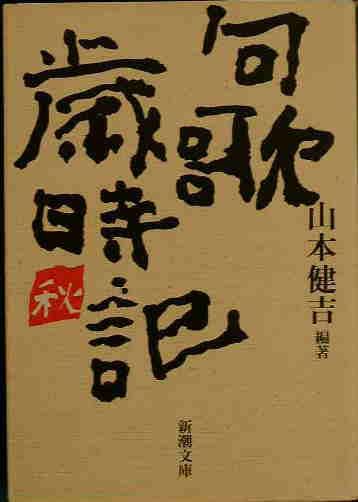 句歌
歳時記
秋
山本健吉
編著
新潮文庫